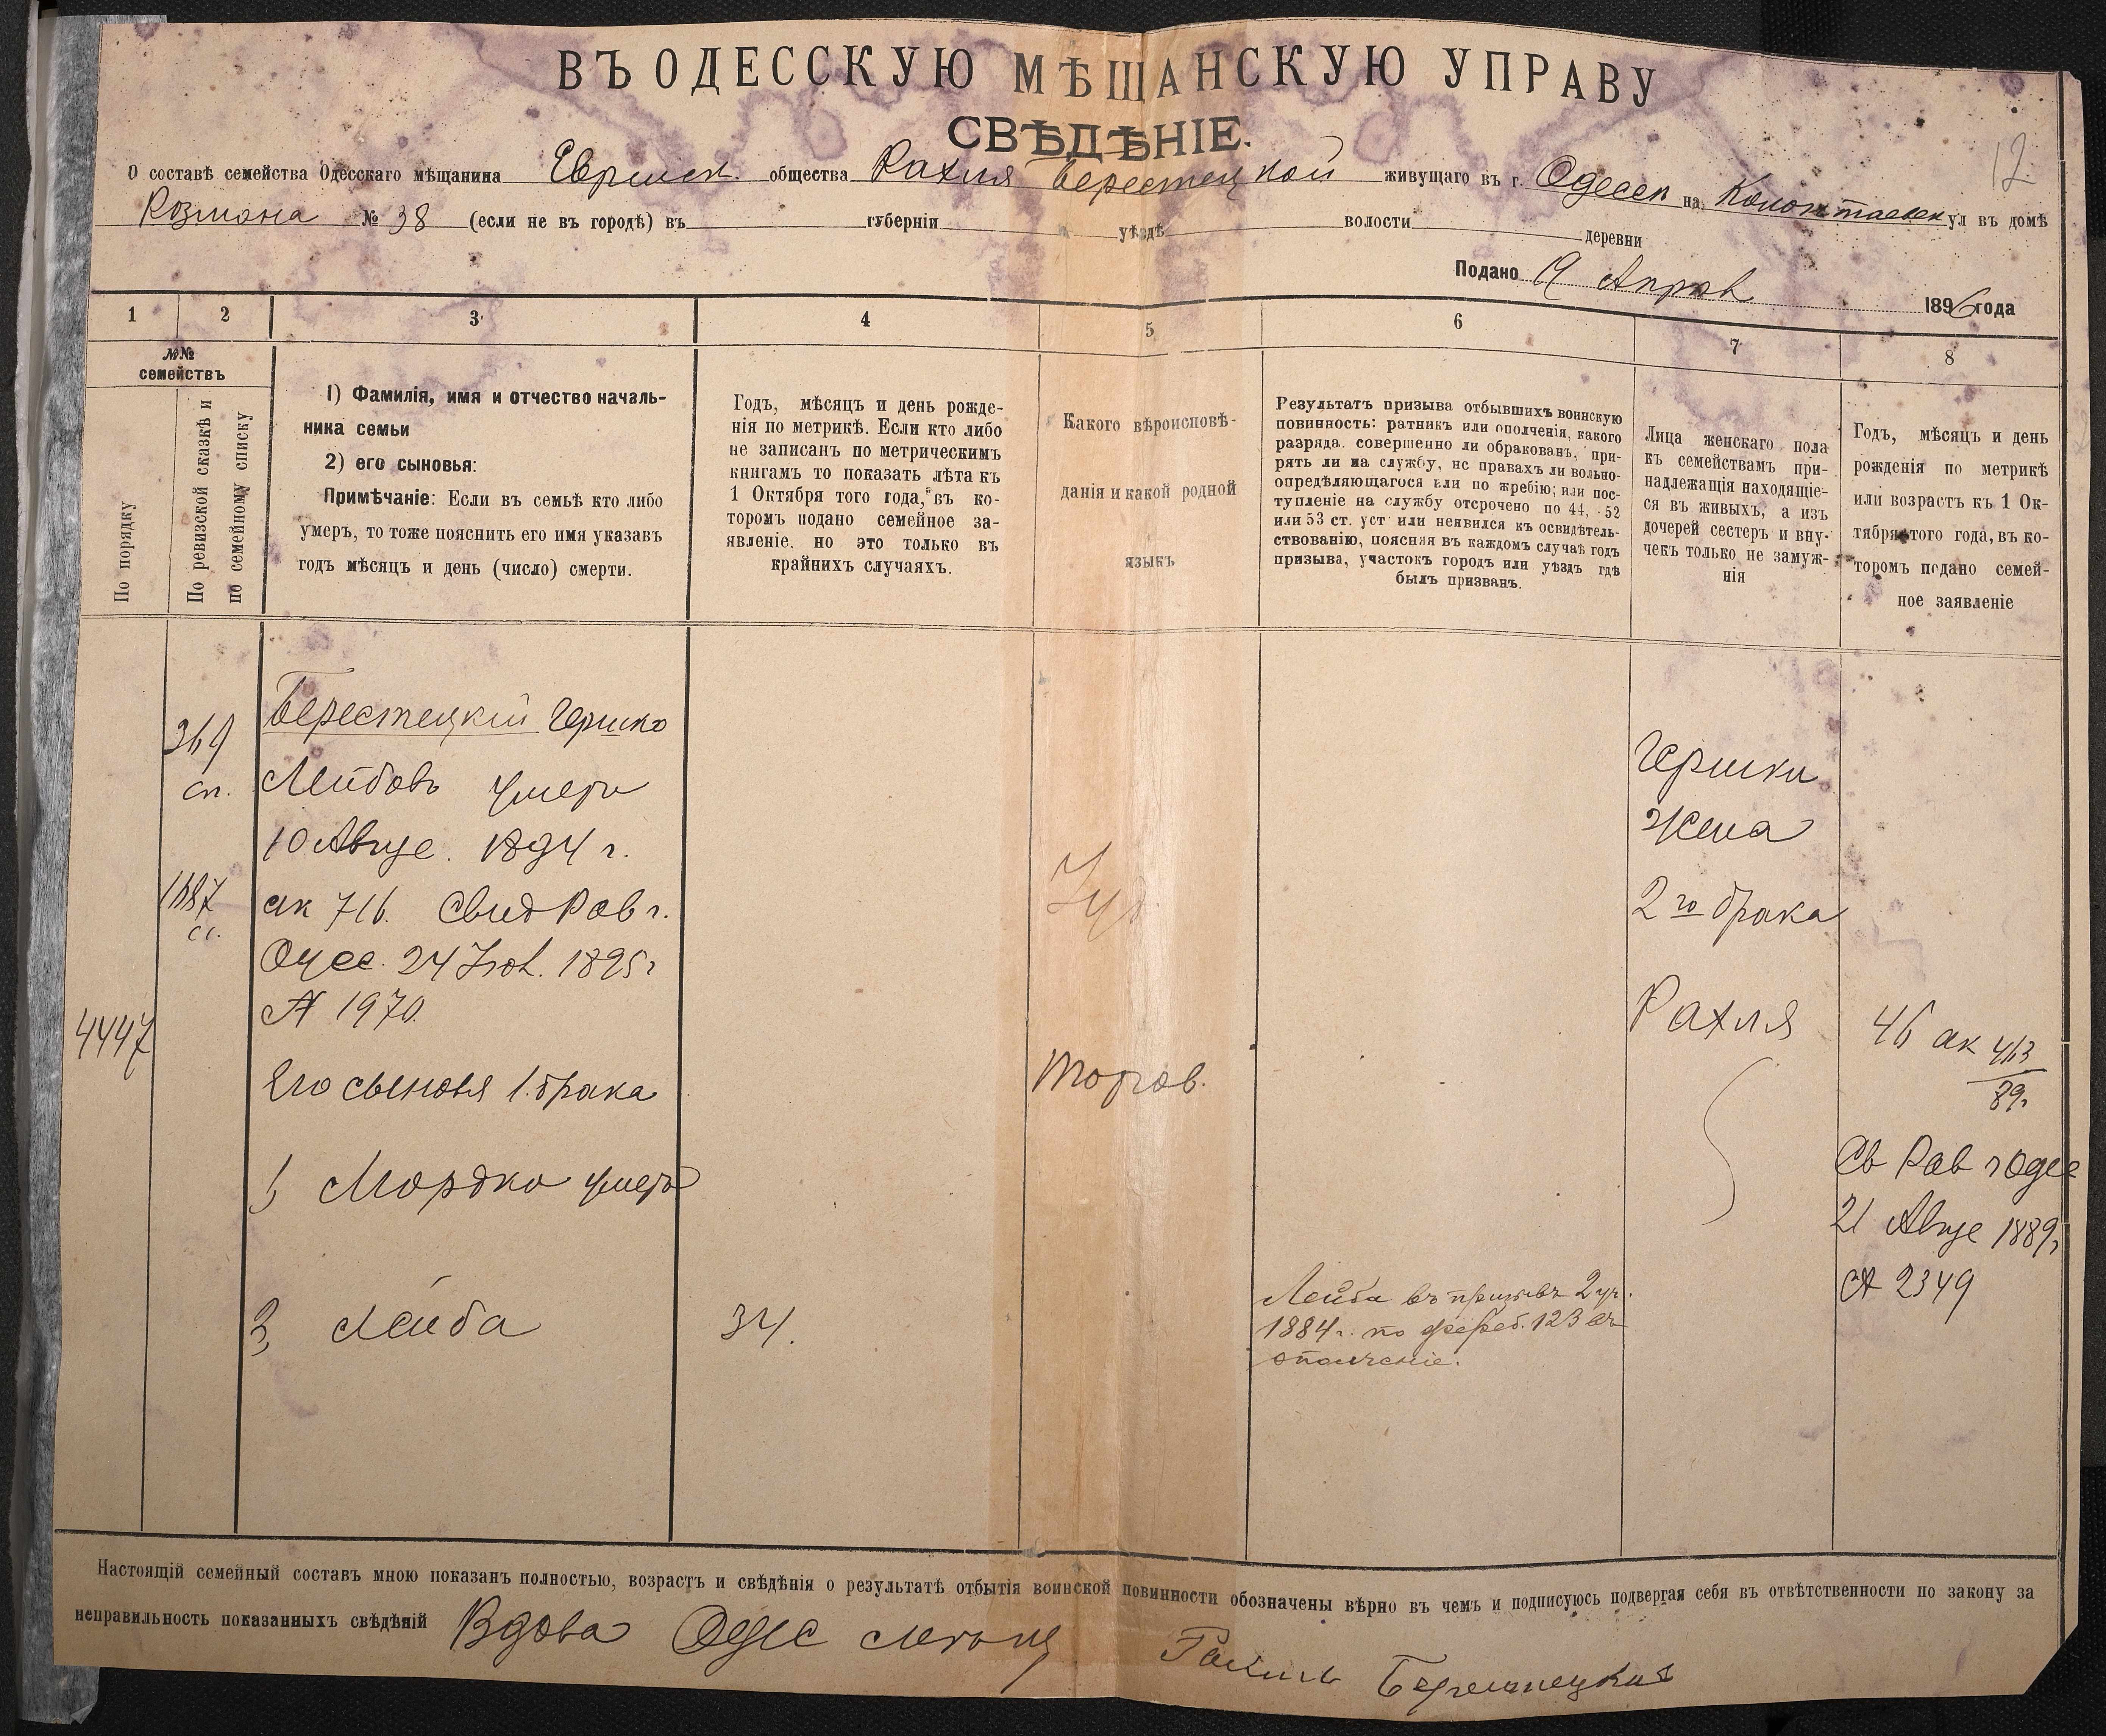 ВЪ ОДЕССКУЮ МѢЩАНСКУЮ УПРАВУ
СВѢДѢНІЕ.
12
О составѣ семейства Одесскаго мѣщанина Еврейск. общества Рахля Берестецкой живущаго въ г. Одессѣ на Колонтаевск ул въ домѣ
Розмана № 38 (если не въ городѣ) въ губерніи уѣздѣ волости деревни
Подано 9 Апрѣл 1896 года
1 2 3 4 5 6 7 8
№№ семействъ
По порядку
По ревизской сказкѣ и
по семейному списку
1) Фамилія, имя и отчество началь-
ника семьи
2) его сыновья:
Примѣчаніе: Если въ семьѣ кто либо
умеръ, то тоже пояснить его имя указавъ
годъ мѣсяцъ и день (число) смерти.
Годъ, мѣсяцъ и день рожде-
нія по метрикѣ. Если кто либо
не записанъ по метрическимъ
книгамъ то показать лѣта къ
1 Октября того года, въ ко-
торомъ подано семейное за-
явленіе, но это только въ
крайнихъ случаяхъ.
Какого вѣроисповѣ-
данія и какой родной
языкъ
Результатъ призыва отбывшихъ воинскую
повинность: ратникъ или ополченія, какого
разряда. совершенно ли обракованъ, при-
рять ли на службу, нс правахъ ли вольно-
опредѣляющагося или по жребію; или пос-
тупленіе на службу отсрочено по 44, 52
или 53 ст. уст или неявился къ освидѣтель-
ствованію, поясняя въ каждомъ случаѣ годъ
призыва, участокъ городъ или уѣздъ гдѣ
былъ призванъ.
Лица женскаго пола
къ семействамъ при-
надлежащія находящіе-
ся въ живыхъ, а изъ
дочерей сестеръ и вну-
чекъ только не замуж-
нія
Годъ, мѣсяцъ и день
рожденія по метрикѣ
или возрастъ къ 1 Ок-
тября того года, въ ко-
торомъ подано семей-
ное заявленіе
4447
369
сп.
1887
сс.
Берестецкій Гершко
Лейбовъ умеръ
10 Авгус. 1894 г.
ак 716. Свид Рав г.
Одес. 24 1895 г
№ 1970.
Его сыновья 1. брака
1, Мордко умеръ
2, Лейба
34.
Іуд.
Торгов.
Лейба въ призывѣ 2 уч.
1884 г. по жереб. 123 въ
ополченіе.
Гершки
Жена
2го брака
Рахля
46 ак 463
89 г.
Св Рав г Одес
21 Авгус 1889 г
№ 2349
Настоящій семейный составъ мною показанъ полностью, возрастъ и свѣдѣнія о результатѣ отбытія воинской повинности обозначены вѣрно въ чемъ и подписуюсь подвергая себя въ отвѣтственности по закону за
неправильность показанныхъ свѣдѣній Вдова Одес мѣщ Рахиль Берестецкая